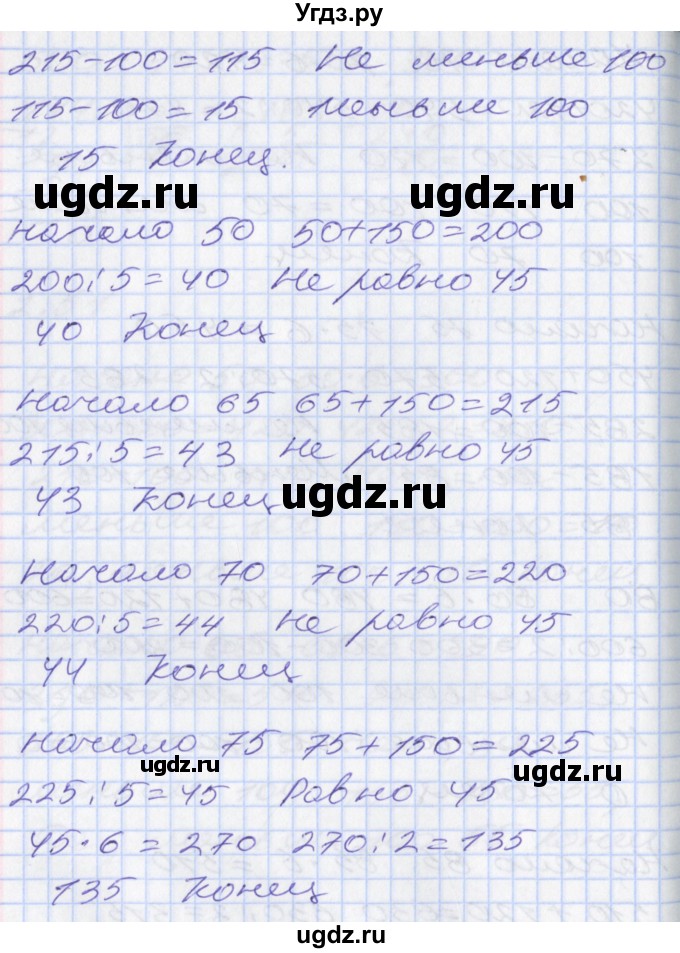 Угдз.ру
215-100=115 Не меньше 100
115-100=15 Меньше 100
15 Конец.
ugdz.ru ugdz.ru
Начало 50 50+150=200
200:5=40 Не равно 45
40 Конец
Начало 65 65+150=215
215:5=43 Не равно 45
43 Конец
ugdz.ru
Начало 70 70+150=220
220:5=44 Не равно 45
44 Конец
Начало 75 75+150=225
ugdz.ru ugdz.ru
225:5=45 Равно 45
45·6=270 270:2=135
135 Конец
ugdz.ru